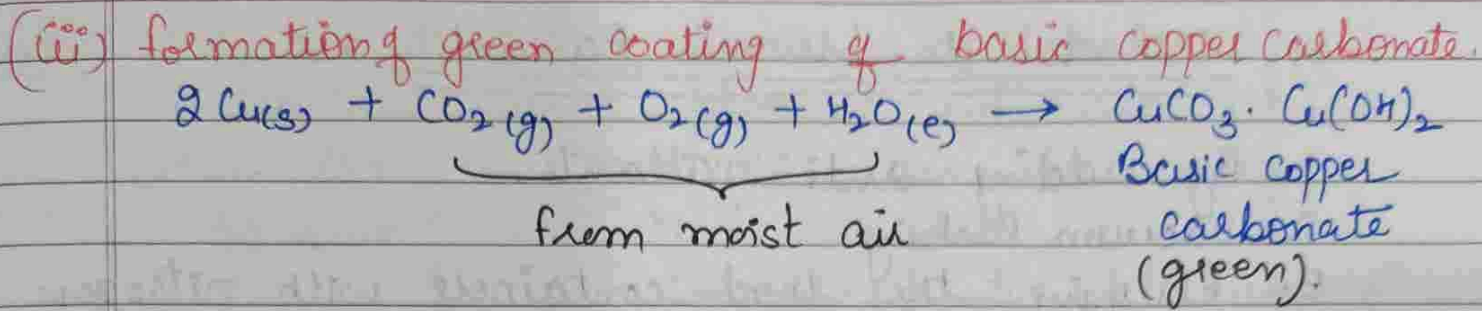 (iii) formation of green coating of basic copper carbonate.
2 Cu(s) + CO₂(g) + O₂(g) + H₂O(l) → CuCO₃. Cu(OH)₂
Basic copper
from moist air carbonate
(green).